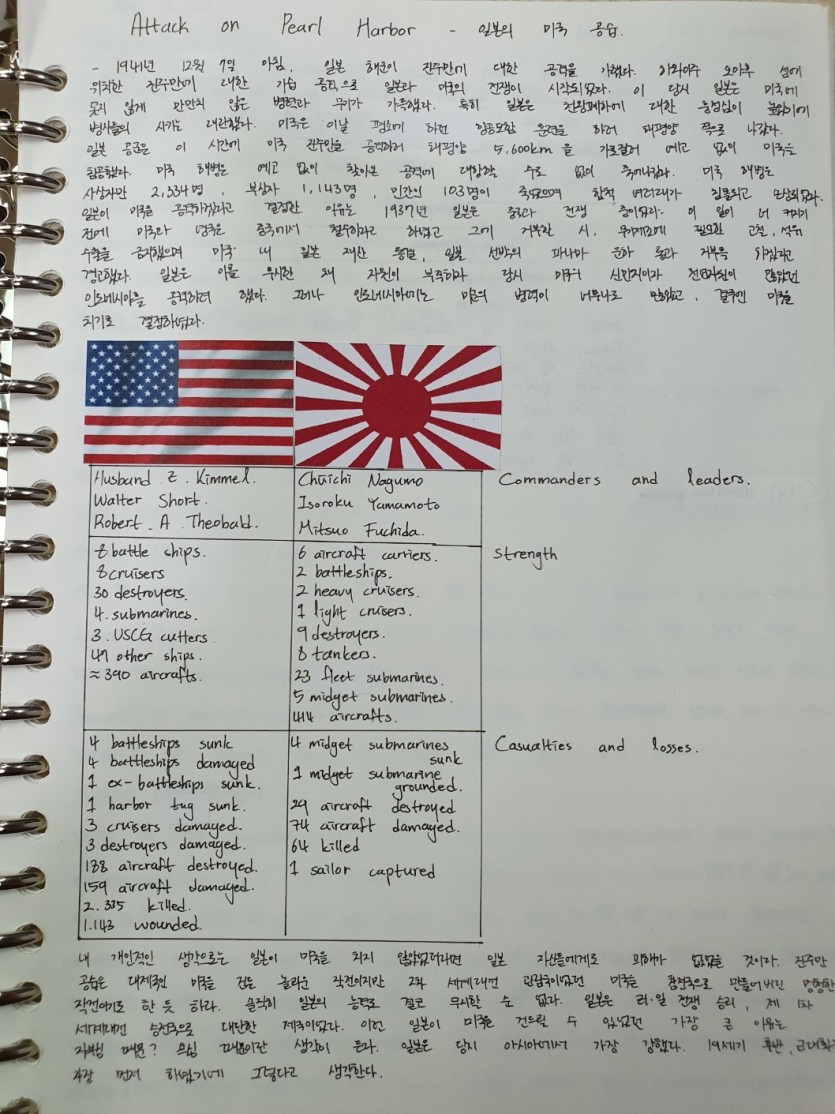 Attack on Pearl Harbor - 일본의 미국 공습.
- 1941년 12월 7일 아침, 일본 해군이 진주만에 대한 공격을 가했다. 하와이주 오아후 섬에
위치한 진주만에 대한 기습 공격으로 일본과 미국의 전쟁이 시작되었다. 이 당시 일본은 미국에
못지 않게 만만치 않은 병력과 무기가 가득했다. 특히 일본은 천왕폐하에 대한 충성심이 높았기에
병사들의 사기는 대단했다. 미국은 이날 평소에 하던 항공모함 훈련을 하러 태평양 쪽으로 나갔다.
일본 공군은 이 시간에 미국 진주만을 공격하러 태평양 5,600km을 가로질러 예고 없이 미국을
침공했다. 미국 해병은 예고 없이 찾아온 공격에 대항할 수도 없이 죽어나갔다. 미국 해병은
사상자만 2,334명, 부상자 1,143명, 민간인 103명이 죽었으며 함척 여러대가 침몰되고 손상되었다.
일본이 미국을 공격하겠다고 결정한 이유는 1937년 일본은 중국과 전쟁 중이었다. 이 일이 더 커지기
전에 미국과 영국은 중국에서 철수하라고 하였고 그에 거부할 시, 무기제조에 필요한 고철, 석유
수출을 금지했으며 미국 내 일본 재산 동결, 일본 선박의 파나마 운하 통과 거부를 하겠다고
경고했다. 일본은 이를 무시한 채 자원이 부족하자 당시 미국의 식민지이자 천연자원이 많았던
인도네시아를 공격하려 했다. 그러나 인도네시아에는 미군의 병력이 너무나도 많았고, 결국엔 미국을
치기로 결정하였다.
Husband E. Kimmel.
Walter Short.
Robert A. Theobald.
Chuichi Nagumo
Isoroku Yamamoto
Mitsuo Fuchida.
Commanders and leaders.
8 battle ships.
8 cruisers
30 destroyers.
4. submarines.
3. USCG cutters
47 other ships.
≈ 390 aircrafts.
6 aircraft carriers.
2 battleships.
2 heavy cruisers.
1 light cruisers.
9 destroyers.
8 tankers.
23 fleet submarines.
5 midget submarines.
414 aircrafts.
Strength
4 battleships sunk
4 battleships damaged
1 ex-battleships sunk.
1 harbor tug sunk.
3 cruisers damaged.
3 destroyers damaged.
188 aircraft destroyed.
159 aircraft damaged.
2.335 killed.
1.143 wounded.
4 midget submarines
sunk
1 midget submarine
grounded.
29 aircraft destroyed
74 aircraft damaged.
64 killed
1 sailor captured
Casualties and losses.
내 개인적인 생각으로는 일본이 미국을 치지 않았었더라면 일본 자신들에게도 피해가 없었을 것이다. 진주만
공습은 대제국인 미국을 건든 놀라운 작전이지만 2차 세계대전 관람국이었던 미국을 참전국으로 만들어버린 멍청한
작전이기도 한 듯 하다. 솔직히 일본의 능력도 결코 무시할 순 없다. 일본은 러·일 전쟁 승리, 제 1차
세계대전 승전국으로 대단한 제국이었다. 이런 일본이 미국을 건드릴 수 있었던 가장 큰 이유는
자만심 때문? 의심 때문이란 생각이 든다. 일본은 당시 아시아에서 가장 강했다. 19세기 후반, 근대화를
가장 먼저 하였기에 그렇다고 생각한다.